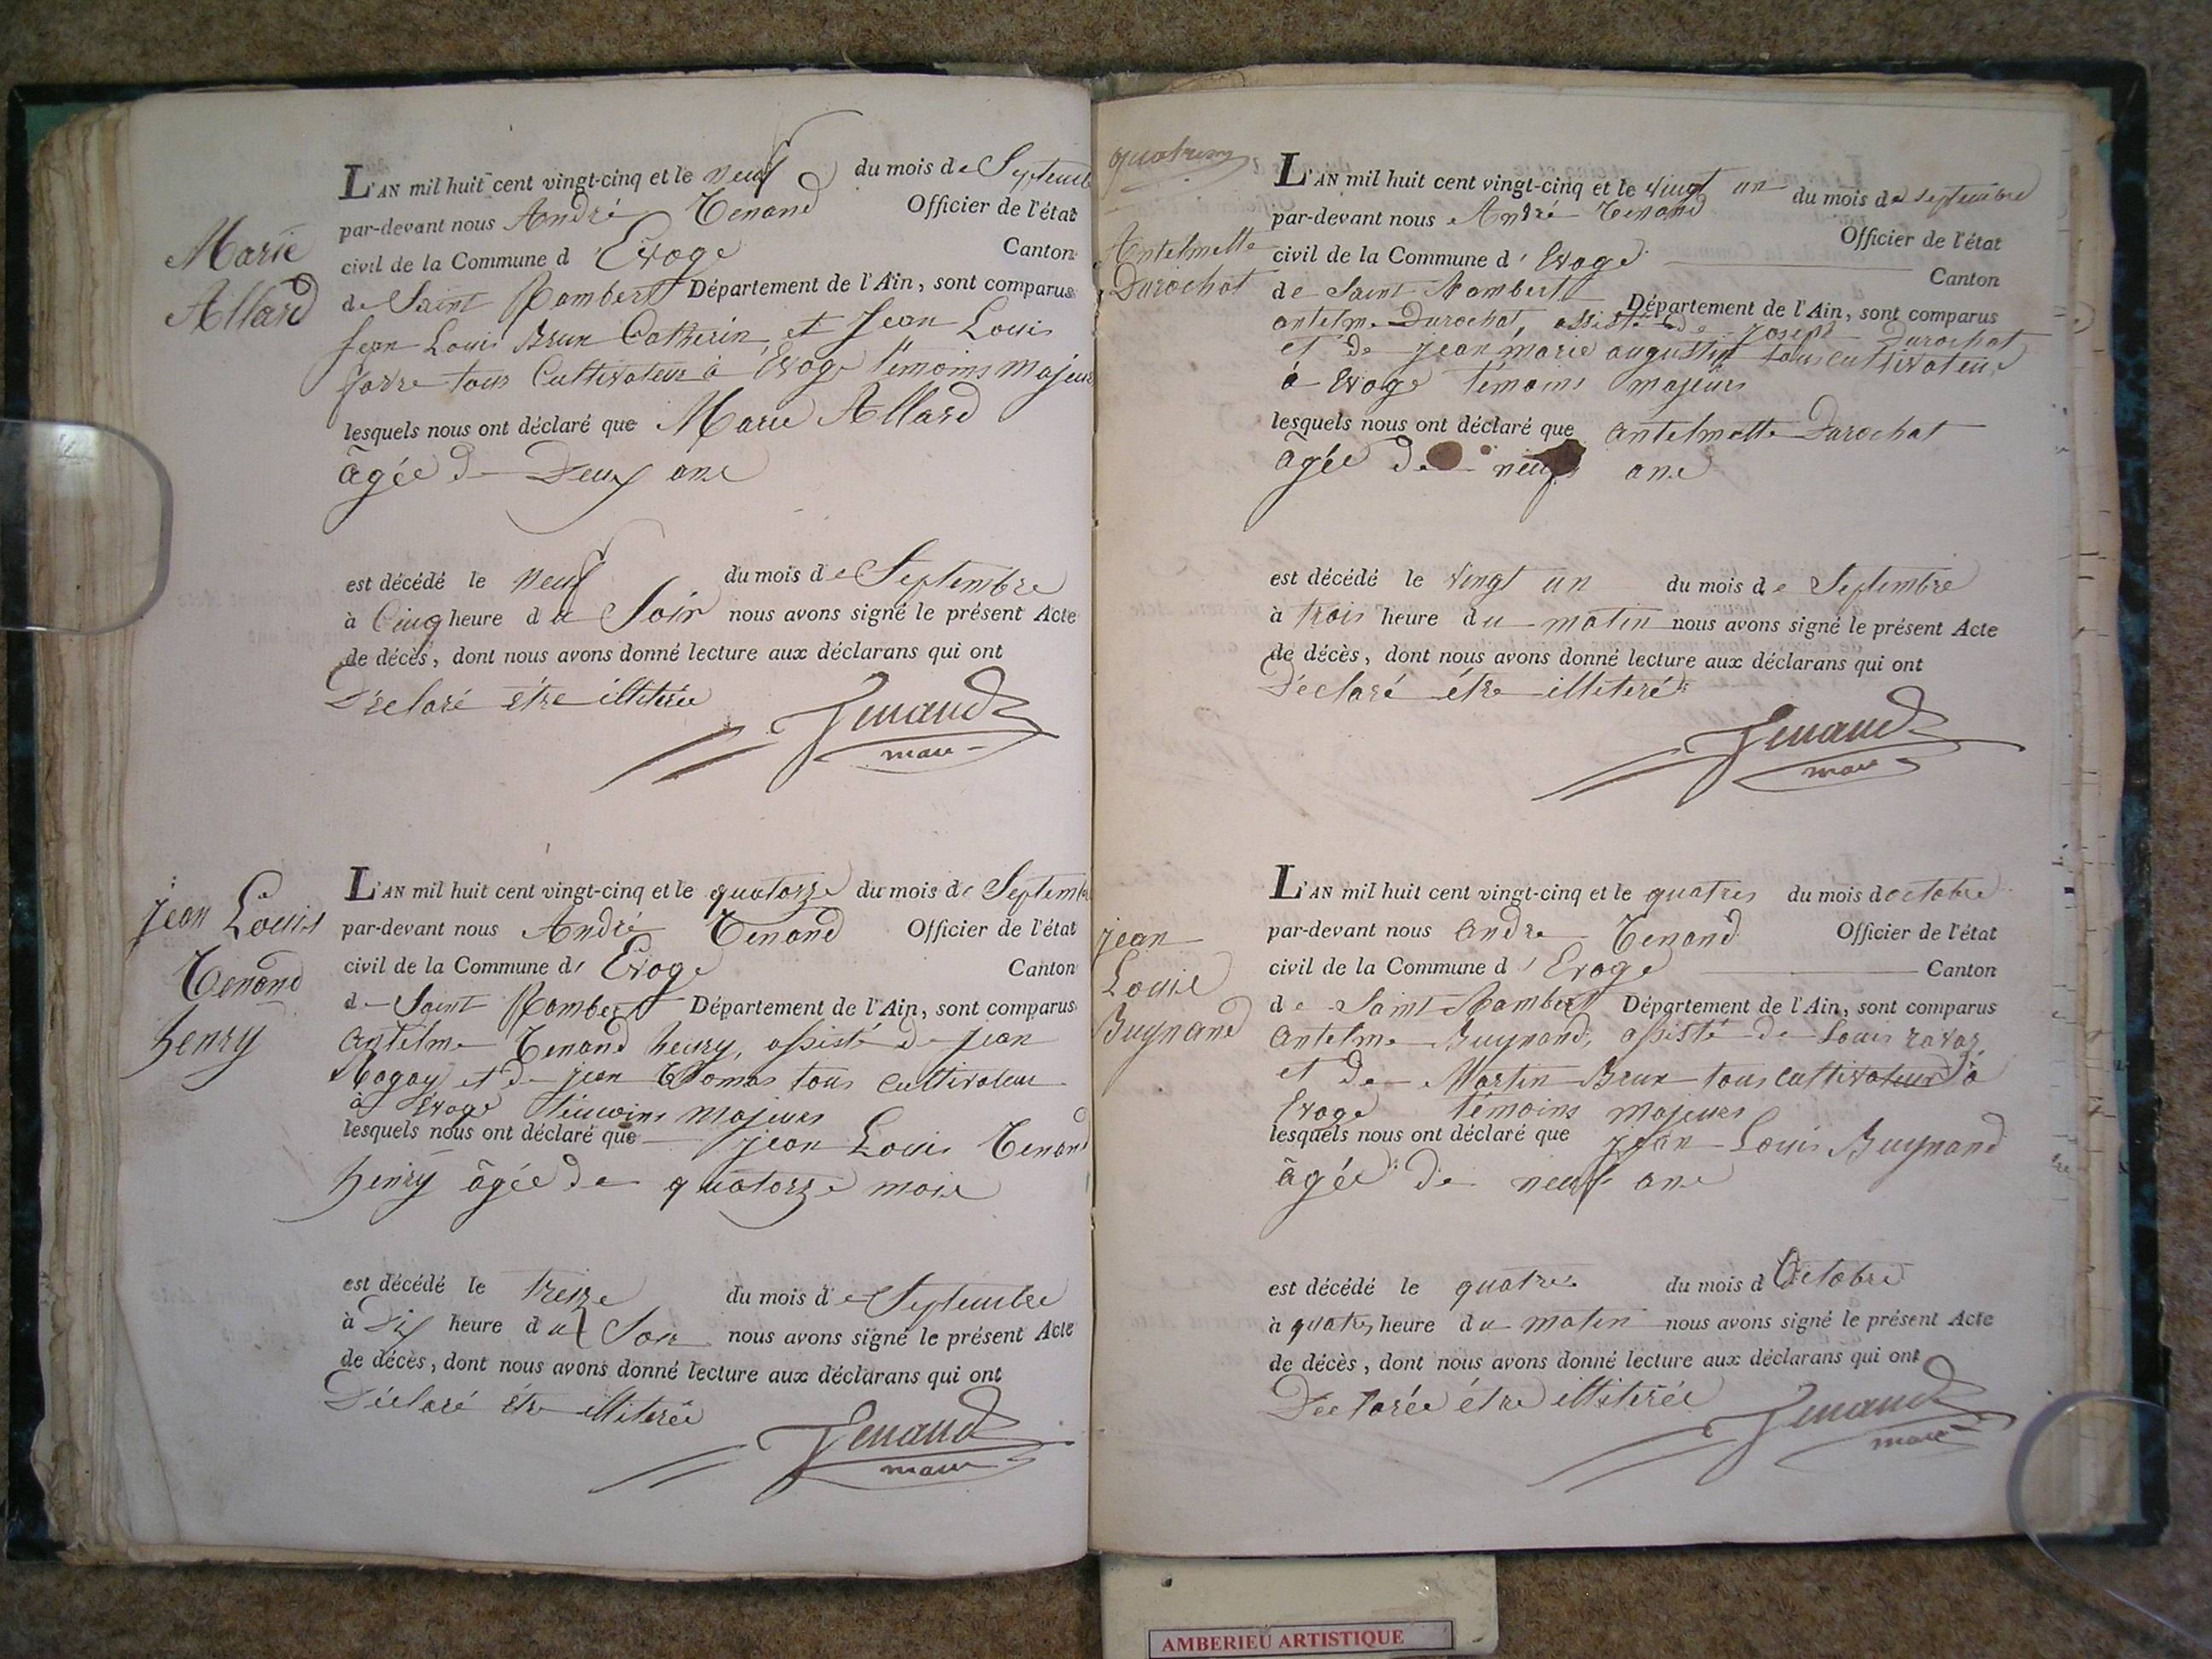 Marie
Allard
L'AN mil huit cent vingt-cinq et le neuf du mois de Septemb
par-devant nous André Tenand Officier de l'état
civil de la Commune d'Evoge Canton
de Saint Rambert Département de l'Ain, sont comparus
Jean Louis Brun Catherin, et Jean Louis
favre tous Cultivateur à Evoge témoins majeurs
lesquels nous ont déclaré que Marie Allard
âgée de Deux ans
est décédé le neuf du mois de Septembre
à Cinq heure du Soir nous avons signé le présent Acte
de décès, dont nous avons donné lecture aux déclarans qui ont
Déclaré être illiterée
Tenand
maire
jean Louis
Tenand
henry
L'AN mil huit cent vingt-cinq et le quatorze du mois de Septemb
par-devant nous André Tenand Officier de l'état
civil de la Commune d'Evoge Canton
de Saint Rambert Département de l'Ain, sont comparus
antelme Tenand henry, assisté de jean
Ragay et de jean Thomas tous cultivateur
à Evoge témoins majeurs
lesquels nous ont déclaré que jean Louis Tenand
henry âgée de quatorze mois
est décédé le treize du mois de Septembre
à Dix heure du Soir nous avons signé le présent Acte
de décès, dont nous avons donné lecture aux déclarans qui ont
Déclaré être illiterée
Tenand
maire
Antelmette
Durochat
L'AN mil huit cent vingt-cinq et le vingt un du mois de septembre
par-devant nous André Tenand Officier de l'état
civil de la Commune d'Evoge Canton
de Saint Rambert Département de l'Ain, sont comparus
antelme Durochat, assisté de joseph Durochat
et de jean marie augustin tous cultivateur
à Evoge témoins majeurs
lesquels nous ont déclaré que antelmette Durochat
âgée de neuf ans
est décédé le vingt un du mois de Septembre
à trois heure du matin nous avons signé le présent Acte
de décès, dont nous avons donné lecture aux déclarans qui ont
Déclaré être illiteré
Tenand
maire
jean
Louis
Buynand
L'AN mil huit cent vingt-cinq et le quatres du mois doctobre
par-devant nous andre Tenand Officier de l'état
civil de la Commune d'Evoge Canton
de Saint Rambert Département de l'Ain, sont comparus
antelme Buynand, assisté de Louis
et de Martin Brun tous cultivateur à
Evoge témoins majeurs
lesquels nous ont déclaré que jean Louis Buynand
âgée de neuf ans
est décédé le quatres du mois d Octobre
à quatres heure du matin nous avons signé le présent Acte
de décès, dont nous avons donné lecture aux déclarans qui ont
Déclarée être illiterée
Tenand
maire
AMBERIEU ARTISTIQUE